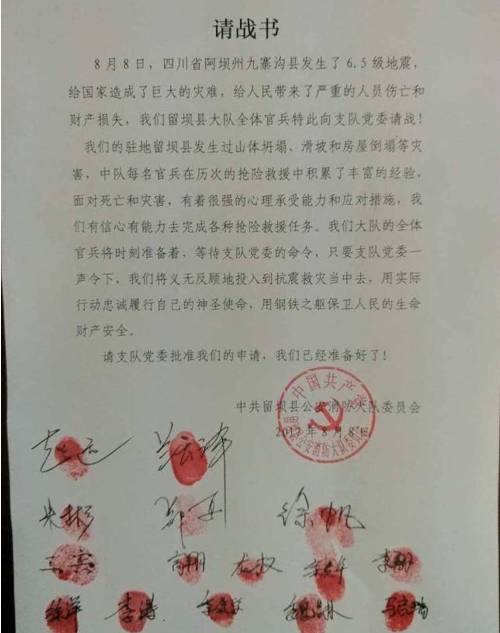 请战书
8月8日，四川省阿坝州九寨沟县发生了6.5级地震，
给国家造成了巨大的灾难，给人民带来了严重的人员伤亡和
财产损失，我们留坝县大队全体官兵特此向支队党委请战！
我们的驻地留坝县发生过山体坍塌、滑坡和房屋倒塌等灾
害，中队每名官兵在历次的抢险救援中积累了丰富的经验，
面对死亡和灾害，有着很强的心理承受能力和应对措施，我
们有信心有能力去完成各种抢险救援任务。我们大队的全体
官兵将时刻准备着，等待支队党委的命令，只要支队党委一
声令下，我们将义无反顾地投入到抗震救灾当中去，用实际
行动忠诚履行自己的神圣使命，用钢铁之躯保卫人民的生命
财产安全。
请支队党委批准我们的申请，我们已经准备好了！
中国共产党
中共留坝县公安消防大队委员会
2017年8月8日
朱彬
徐帆
高翔 龙权
李涛